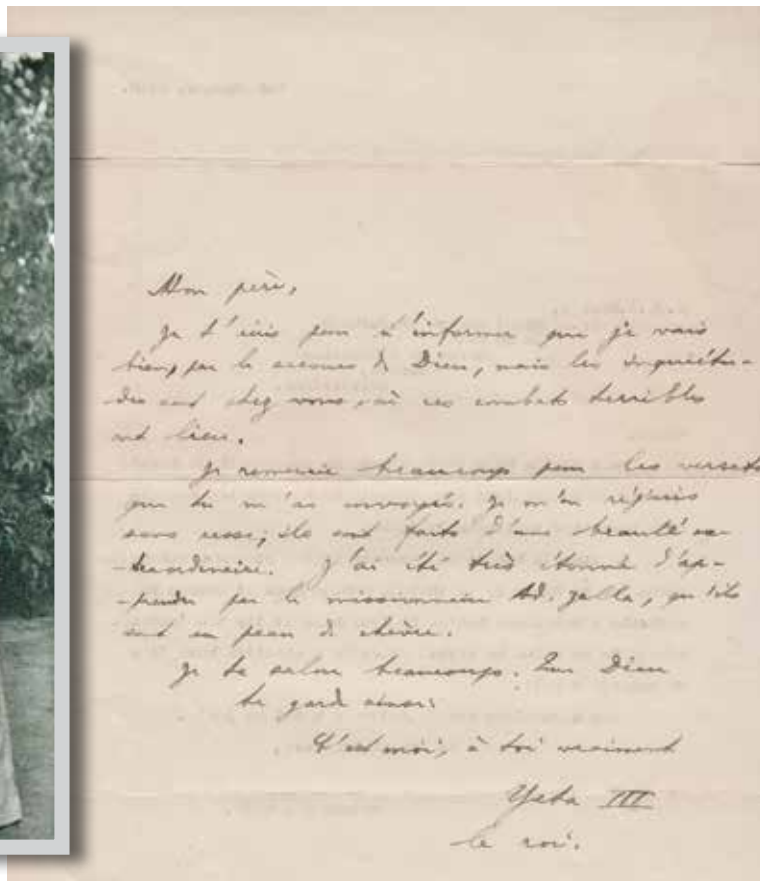 Mon père,
Je t'écris pour t'informer que je vais
bien, par le secours de Dieu, mais les inquiétu-
-des sont chez vous, où ces combats terribles
ont lieu.
Je remercie beaucoup pour les versets
que tu m'as envoyés. Je m'en réjouis
sans cesse; ils sont faits d'une beauté ex-
-traordinaire. J'ai été très étonné d'ap-
-prendre par le missionnaire Ad. Jalla, qu'ils
sont en peau de chèvre.
Je te salue beaucoup. Que Dieu
te garde ainsi.
C'est moi, à toi vraiment
Yeta III
le roi.